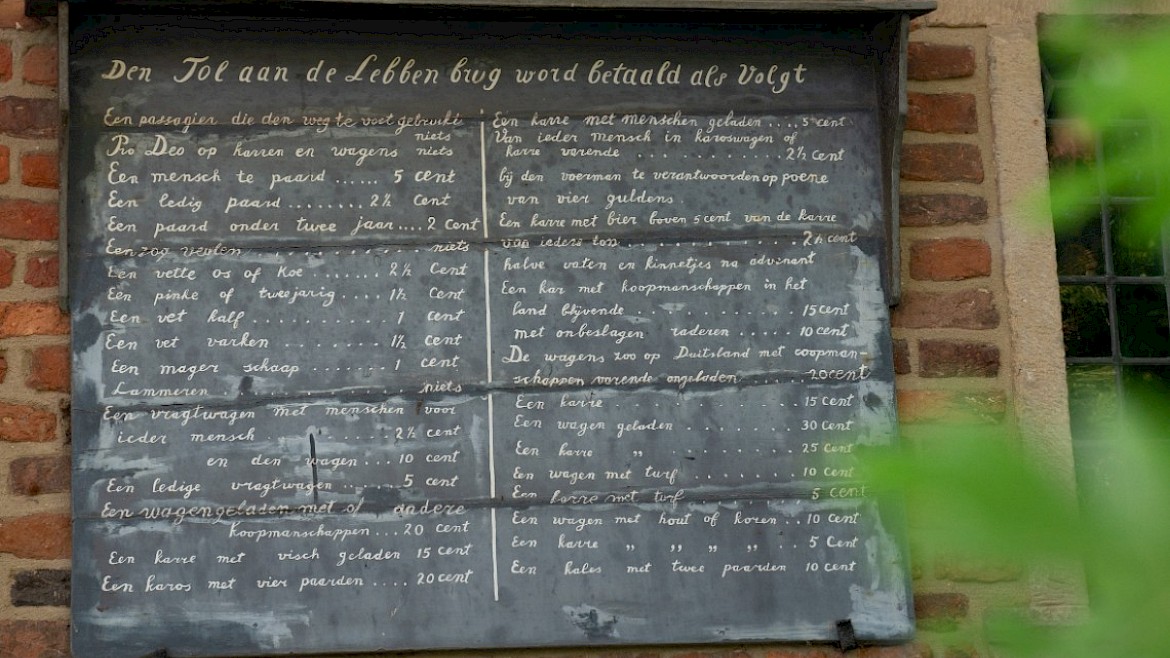 Den Tol aan de Lebben brug word betaald als Volgt
Een passagier die den weg te voet gebruikt
niets
Pro Deo op karren en wagens niets
Een mensch te paard ...... 5 cent
Een ledig paard ........ 2½ cent
Een paard onder twee jaar.... 2 cent
Een zog veulen .......... niets
Een vette os of koe ....... 2½ Cent
Een pinke of tweejarig .... 1½ Cent
Een vet kalf ............ 1 cent
Een vet varken ......... 1½ cent
Een mager schaap ....... 1 cent
Lammeren ............ niets
Een vragtwagen met menschen voor
ieder mensch .......... 2½ cent
en den wagen ... 10 cent
Een ledige vragtwagen ....... 5 cent
Een wagen geladen met of andere
Koopmanschappen ... 20 cent
Een karre met visch geladen 15 cent
Een karos met vier paarden .... 20 cent
Een karre met menschen geladen .... 5 cent
Van ieder mensch in karoswagen of
karre varende ........... 2½ Cent
bij den voerman te verantwoorden op poene
van vier guldens.
Een karre met bier boven 5 cent van de karre
van iedere ton ............ 2½ cent
halve vaten en kinnetjes na advinant
Een kar met koopmanschappen in het
land blijvende ........... 15 cent
met onbeslagen raderen .... 10 cent
De wagens zoo op Duitsland met coopman
schappen varende ongeladen ....... 20 cent
Een karre ............... 15 cent
Een wagen geladen ......... 30 cent
Een karre „ ........... 25 cent
Een wagen met turf ........ 10 cent
Een karre met turf ......... 5 cent
Een wagen met hout of koren .. 10 cent
Een karre „ „ „ „ .. 5 Cent
Een kales met twee paarden 10 cent